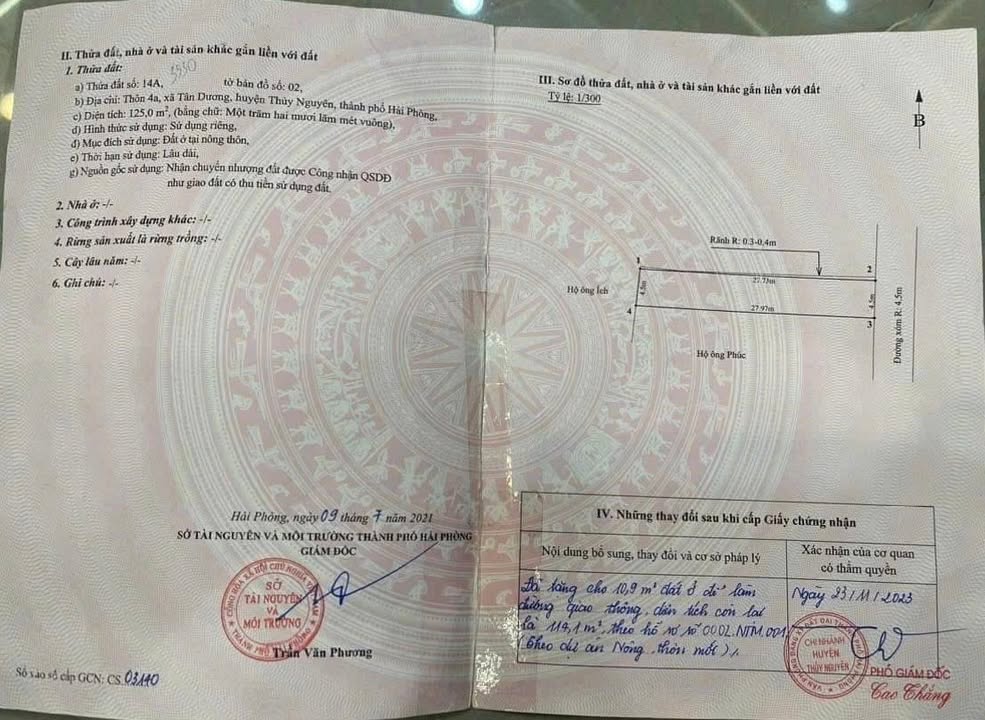 II. Thửa đất, nhà ở và tài sản khác gắn liền với đất
1. Thửa đất:
3550
a) Thửa đất số: 14A, tờ bản đồ số: 02,
b) Địa chỉ: Thôn 4a, xã Tân Dương, huyện Thủy Nguyên, thành phố Hải Phòng,
c) Diện tích: 125,0 m², (bằng chữ: Một trăm hai mươi lăm mét vuông),
d) Hình thức sử dụng: Sử dụng riêng,
đ) Mục đích sử dụng: Đất ở tại nông thôn,
e) Thời hạn sử dụng: Lâu dài,
g) Nguồn gốc sử dụng: Nhận chuyển nhượng đất được Công nhận QSDĐ
như giao đất có thu tiền sử dụng đất.
2. Nhà ở: -/-
3. Công trình xây dựng khác: -/-
4. Rừng sản xuất là rừng trồng: -/-
5. Cây lâu năm: -/-
6. Ghi chú: -/-
Hải Phòng, ngày 09 tháng 7 năm 2021
SỞ TÀI NGUYÊN VÀ MÔI TRƯỜNG THÀNH PHỐ HẢI PHÒNG
GIÁM ĐỐC
SỞ
TÀI NGUYÊN
VÀ
MÔI TRƯỜNG
Trần Văn Phương
Số vào sổ cấp GCN: CS 03140
III. Sơ đồ thửa đất, nhà ở và tài sản khác gắn liền với đất
Tỷ lệ: 1/300
B
Rãnh R: 0.3-0,4m
1
2
27.73m
Hộ ông Ích
4.5m
4.5m
4
27.97m
3
Đường xóm R: 4.5m
Hộ ông Phúc
IV. Những thay đổi sau khi cấp Giấy chứng nhận
Nội dung bổ sung, thay đổi và cơ sở pháp lý
Xác nhận của cơ quan
có thẩm quyền
Đã tặng cho 10,9 m² đất ở để làm
đường giao thông, diện tích còn lại
là 114,1 m², theo hồ sơ số 0002.NTM.001
(theo dự án Nông thôn mới)./.
Ngày 23/11/2023
CHI NHÁNH
HUYỆN
THỦY NGUYÊN
PHÓ GIÁM ĐỐC
Cao Thắng